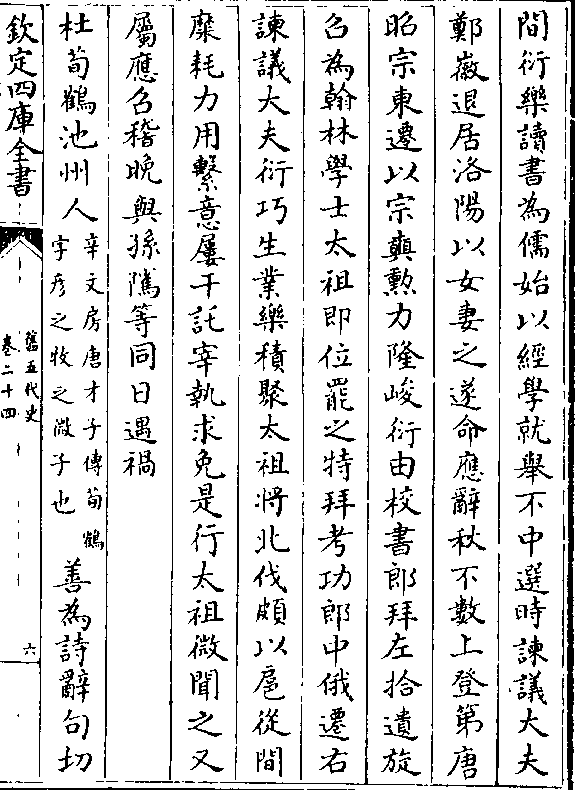 間衍樂讀書為儒始以經學就舉不中選時諫議大夫
鄭徽退居洛陽以女妻之遂命應辭秋不數上登第唐
昭宗東遷以宗奭勲力隆峻衍由校書郎拜左拾遺旋
召為翰林學士太祖即位罷之特拜考功郎中俄遷右
諫議大夫衍巧生業樂積聚太祖將北伐頗以扈從間
糜耗力用繫意屢干託宰執求免是行太祖微聞之又
屬應召稽晚與孫隲等同日遇禍
杜荀鶴池州人
辛文房唐才子傳荀鶴
字彦之牧之微子也
善為詩辭句切
欽定四庫全書
舊五代史
卷二十四
六